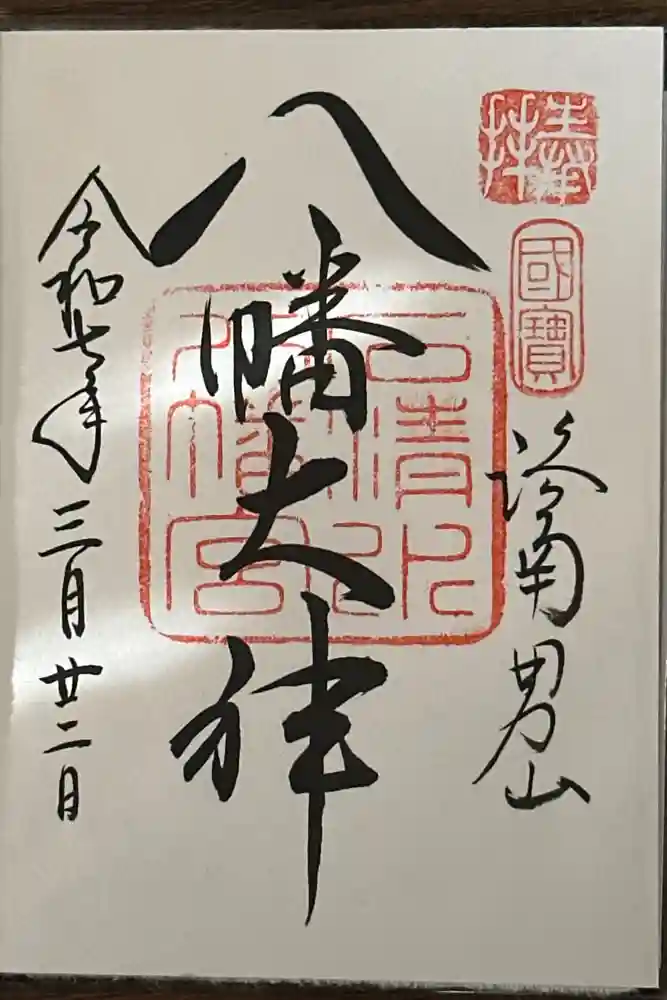 奉拝
國寳
洛南男山
八幡大神
石清水
八幡宮
令和七年三月廿二日